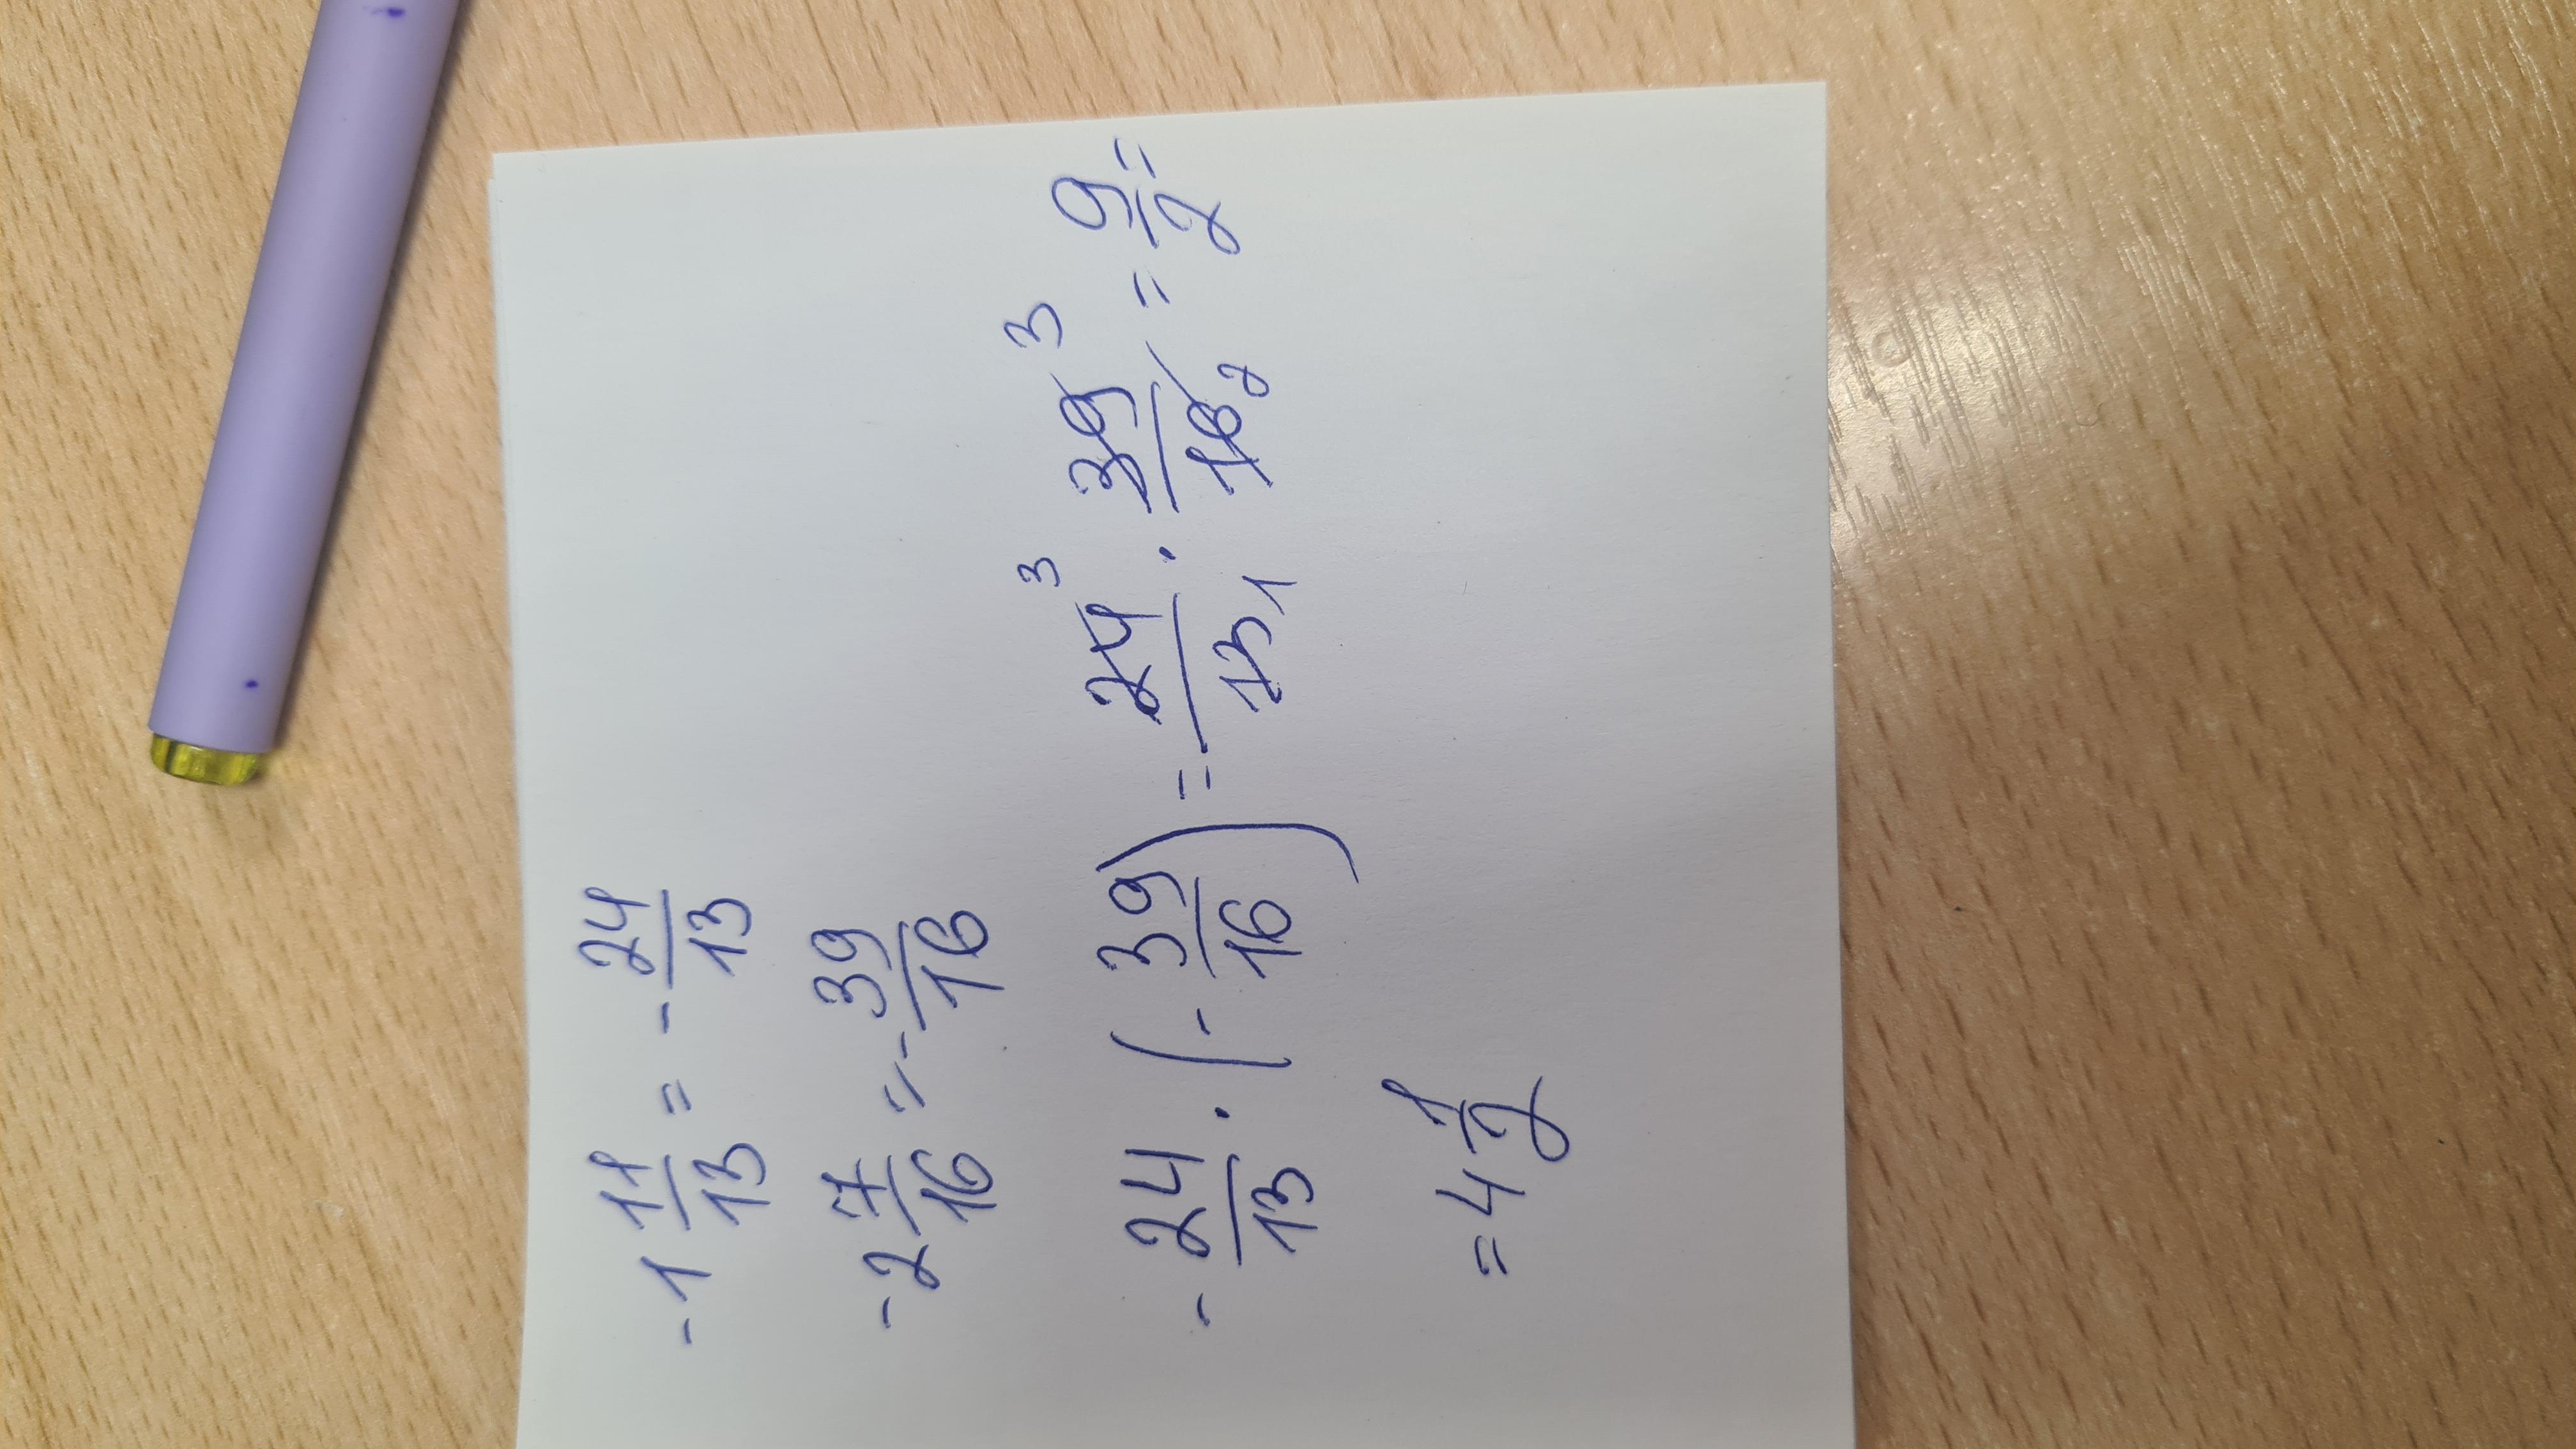 -1 11/13 = - 24/13
-2 7/16 = - 39/16
- 24/13 · (- 39/16) = 24 3/13 1 · 39 3/16 2 = 9/2 =
= 4 1/2